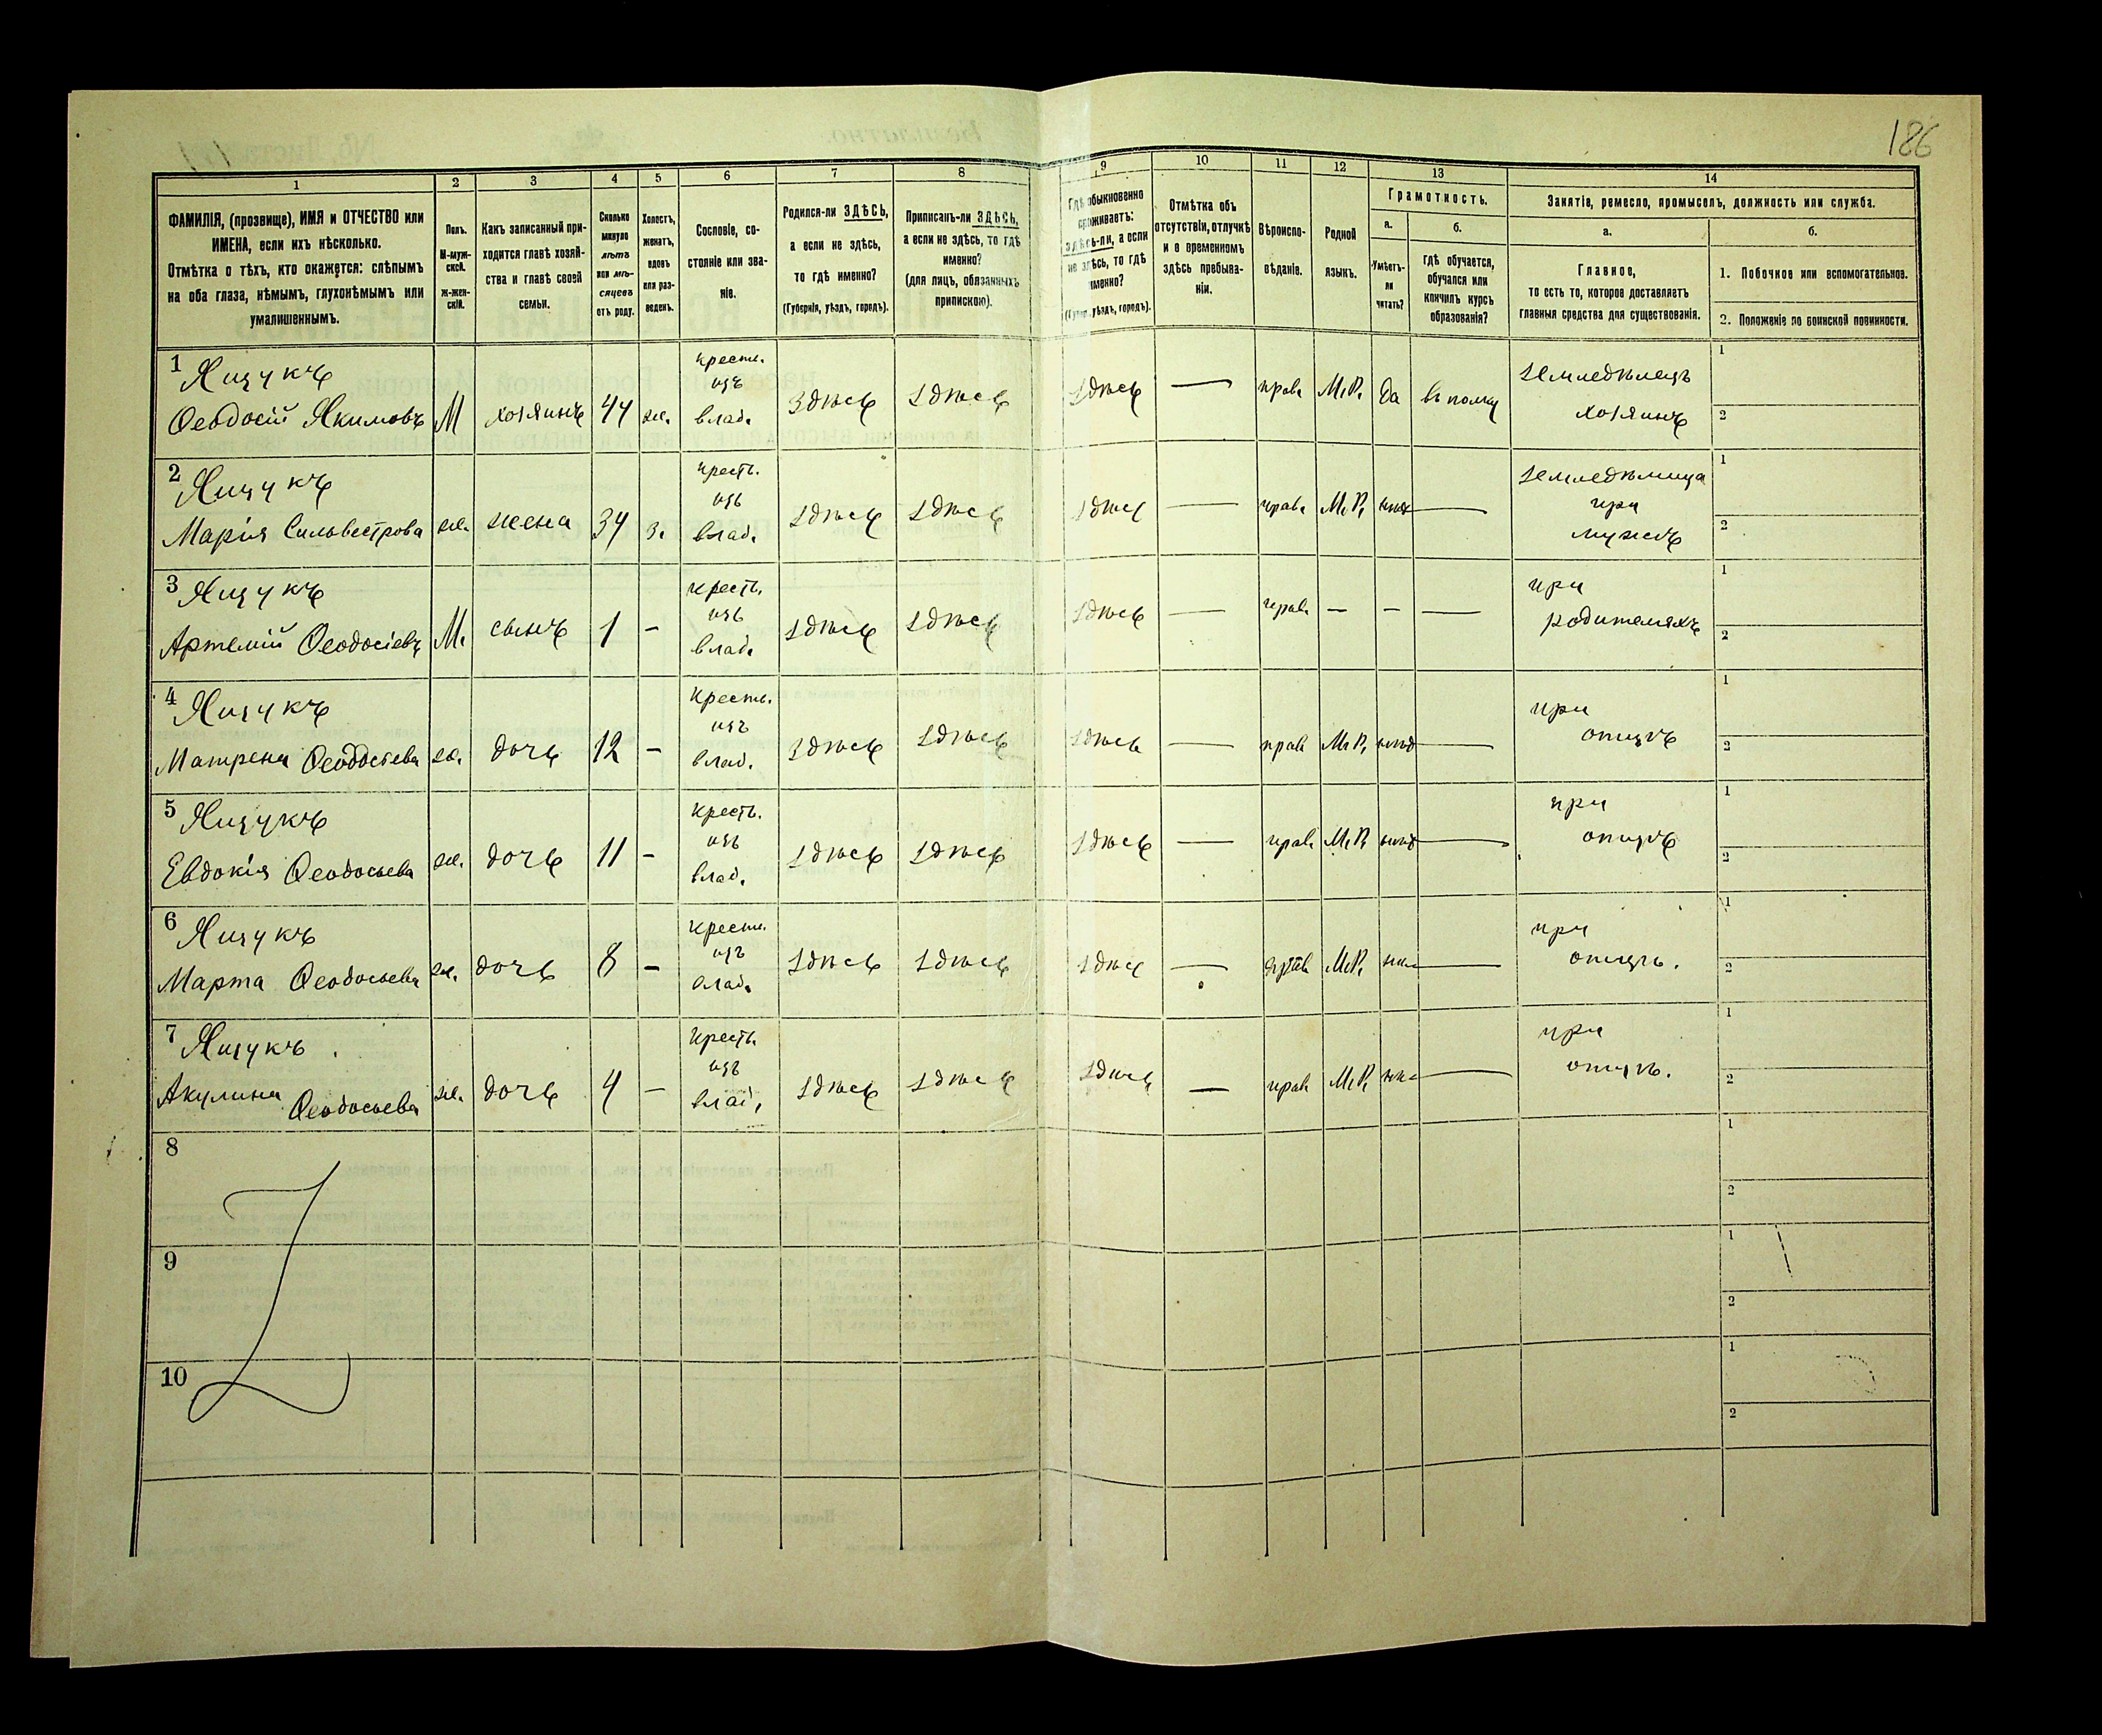 186
1 2 3 4 5 6 7 8 9 10 11 12 13 14
ФАМИЛІЯ, (прозвище), ИМЯ и ОТЧЕСТВО или
ИМЕНА, если ихъ нѣсколько.
Отмѣтка о тѣхъ, кто окажется: слѣпымъ
на оба глаза, нѣмымъ, глухонѣмымъ или
умалишеннымъ.
Полъ.
М-муж-
ской.
ж-жен-
скій.
Какъ записанный при-
ходится главѣ хозяй-
ства и главѣ своей
семьи.
Сколько
минуло
лѣтъ
или мѣ-
сяцевъ
отъ роду.
Холостъ,
женатъ,
вдовъ
или раз-
веденъ.
Сословіе, со-
стояніе или зва-
ніе.
Родился-ли ЗДѢСЬ,
а если не здѣсь,
то гдѣ именно?
(Губернія, уѣздъ, городъ).
Приписанъ-ли ЗДѢСЬ,
а если не здѣсь, то гдѣ
именно?
(для лицъ, обязанныхъ
припискою).
Гдѣ обыкновенно
проживаетъ:
здѣсь-ли, а если
не здѣсь, то гдѣ
именно?
(Губер., уѣздъ, городъ).
Отмѣтка объ
отсутствіи, отлучкѣ
и о временномъ
здѣсь пребыва-
ніи.
Вѣроиспо-
вѣданіе.
Родной
языкъ.
Грамотность.
а.
Умѣетъ-
ли
читать?
б.
гдѣ обучается,
обучался или
кончилъ курсъ
образованія?
Занятіе, ремесло, промыселъ, должность или служба.
а.
Главное,
то есть то, которое доставляетъ
главныя средства для существованія.
б.
1. Побочное или вспомогательное.
2. Положеніе по воинской повинности.
1 Ящукъ крест. земледѣлецъ 1
изъ
Ѳеодосій Якимовъ М хозяинъ 44 же. влад. Здѣсь здѣсь здѣсь — прав. М.Р. да въ полку хозяинъ 2
2 Ящукъ крест. земледѣлица 1
изъ при
Марія Сильвестрова же. жена 34 з. влад. здѣсь здѣсь здѣсь — прав. М.Р. — мужѣ 2
3 Ящукъ крест. при 1
изъ
Артемій Ѳеодосіевъ М. сынъ 1 - влад. здѣсь здѣсь здѣсь — прав. — — — родителяхъ 2
4 Ящукъ крест. при 1
изъ
Матрена Ѳеодосіева же. дочь 12 - влад. здѣсь здѣсь здѣсь — прав М.Р. — отцѣ 2
5 Ящукъ крест. при 1
изъ
Евдокія Ѳеодосьева же. дочь 11 - влад. здѣсь здѣсь здѣсь — прав. М.Р. — отцѣ 2
6 Ящукъ крест. при 1
изъ
Марта Ѳеодосьева же. дочь 8 - влад. здѣсь здѣсь здѣсь — прав М.Р. — отцѣ. 2
7 Ящукъ крест. при 1
изъ
Акулина Ѳеодосьева же. дочь 4 - влад. здѣсь здѣсь здѣсь — прав М.Р. — отцѣ. 2
8 1
2
9 1
2
10 1
2